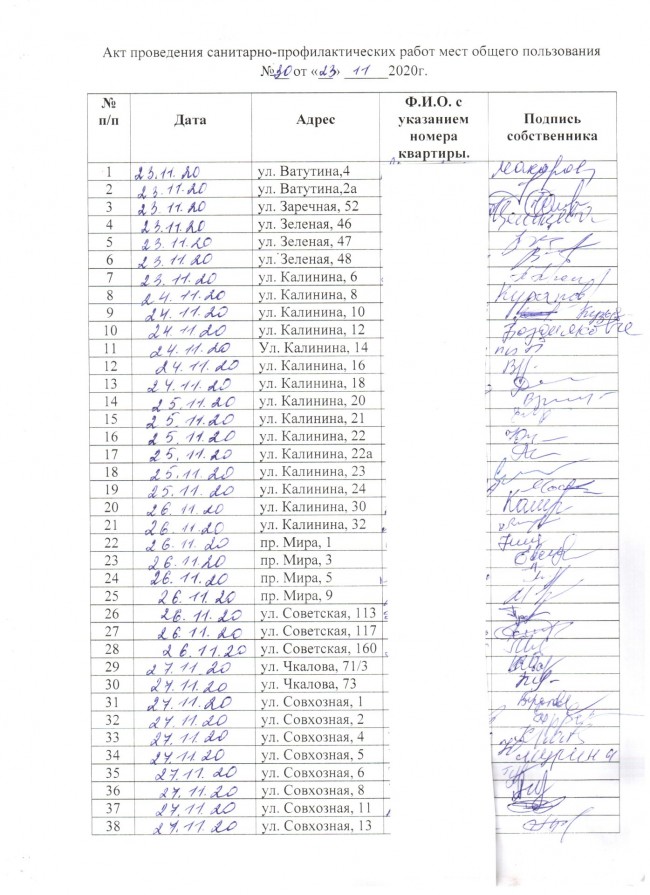 Акт проведения санитарно-профилактических работ мест общего пользования
№30 от «23» 11 2020г.
№ п/п Дата Адрес Ф.И.О. с указанием номера квартиры. Подпись собственника
1 23.11.20 ул. Ватутина,4 Макарова
2 23.11.20 ул. Ватутина,2а
3 23.11.20 ул. Заречная, 52
4 23.11.20 ул. Зеленая, 46
5 23.11.20 ул. Зеленая, 47
6 23.11.20 ул. Зеленая, 48
7 23.11.20 ул. Калинина, 6
8 24.11.20 ул. Калинина, 8
9 24.11.20 ул. Калинина, 10
10 24.11.20 ул. Калинина, 12
11 24.11.20 Ул. Калинина, 14
12 24.11.20 ул. Калинина, 16
13 24.11.20 ул. Калинина, 18
14 25.11.20 ул. Калинина, 20
15 25.11.20 ул. Калинина, 21
16 25.11.20 ул. Калинина, 22
17 25.11.20 ул. Калинина, 22а
18 25.11.20 ул. Калинина, 23
19 25.11.20 ул. Калинина, 24
20 26.11.20 ул. Калинина, 30
21 26.11.20 ул. Калинина, 32
22 26.11.20 пр. Мира, 1
23 26.11.20 пр. Мира, 3
24 26.11.20 пр. Мира, 5
25 26.11.20 пр. Мира, 9
26 26.11.20 ул. Советская, 113
27 26.11.20 ул. Советская, 117
28 26.11.20 ул. Советская, 160
29 27.11.20 ул. Чкалова, 71/3
30 27.11.20 ул. Чкалова, 73
31 27.11.20 ул. Совхозная, 1
32 27.11.20 ул. Совхозная, 2
33 27.11.20 ул. Совхозная, 4
34 27.11.20 ул. Совхозная, 5
35 27.11.20 ул. Совхозная, 6
36 27.11.20 ул. Совхозная, 8
37 27.11.20 ул. Совхозная, 11
38 27.11.20 ул. Совхозная, 13